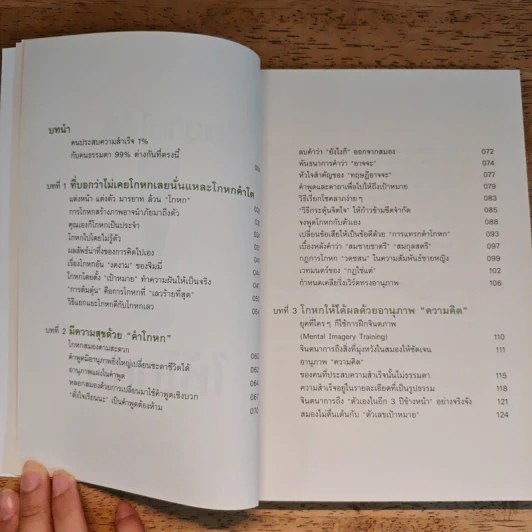 บทนำ
คนประสบความสำเร็จ 1%
กับคนธรรมดา 99% ต่างกันที่ตรงนี้
บทที่ 1 ที่บอกว่าไม่เคยโกหกเลยนั่นแหละโกหกคำโต
แต่งหน้า แต่งตัว มารยาท ล้วน "โกหก"
การโกหกสร้างภาพอาจนำภัยมาถึงตัว
คุณเองก็โกหกเป็นประจำ
โกหกไปโดยไม่รู้ตัว
ผลลัพธ์น่าทึ่งของการคิดไปเอง
เรื่องโกหกอัน "งดงาม" ของจิมมี่
โกหกโดยตั้ง "เป้าหมาย" ทำความฝันให้เป็นจริง
"การต้มตุ๋น" คือการโกหกที่ "เลวร้ายที่สุด"
วิธีแยกแยะโกหกดีกับโกหกเลว
บทที่ 2 มีความสุขด้วย "คำโกหก"
โกหกสมองตามสะดวก
คำพูดมีอานุภาพยิ่งใหญ่เปลี่ยนชะตาชีวิตได้
อานุภาพแฝงในคำพูด
หลอกสมองด้วยการเปลี่ยนมาใช้คำพูดเชิงบวก
"ตั้งใจเรียนนะ" เป็นคำพูดต้องห้าม
ลบคำว่า "ยังไงก็" ออกจากสมอง 072
พันธนาการคำว่า "อาจจะ" 074
หัวใจสำคัญของ "ทฤษฎีอาจจะ" 077
คำพูดและคาถาเพื่อไปให้ถึงเป้าหมาย 079
วิธีเรียกโชคลาภง่ายๆ 083
"วิธีกระตุ้นจิตใจ" ให้ก้าวข้ามขีดจำกัด 085
จงพูดโกหกกับตัวเอง 088
เปลี่ยนข้อเสียให้เป็นข้อดีด้วย "การแทรกคำโกหก" 093
เบื้องหลังคำว่า "สมชายชาตรี" "สมกุลสตรี" 097
กฎการโกหก "เดชสน" ในความสัมพันธ์ชายหญิง 099
เวทมนตร์ของ "กฎใช่แต่" 102
กำหนดเคลียริ่งเวิร์ดทรงอานุภาพ 106
บทที่ 3 โกหกให้ได้ผลด้วยอานุภาพ "ความคิด"
ยุคที่ใครๆ ก็ใช้การฝึกจินตภาพ
(Mental Imagery Training) 110
จินตนาการถึงสิ่งที่มุ่งหวังในสมองให้ชัดเจน 111
อานุภาพ "ความคิด"
ของคนที่ประสบความสำเร็จนั้นไม่ธรรมดา 115
ความสำเร็จอยู่ในรายละเอียดที่เป็นรูปธรรม 118
จินตนาการถึง "ตัวเองในอีก 3 ปีข้างหน้า" อย่างจริงจัง 121
สมองไม่ตื่นเต้นกับ "ตัวเลขเป้าหมาย" 124